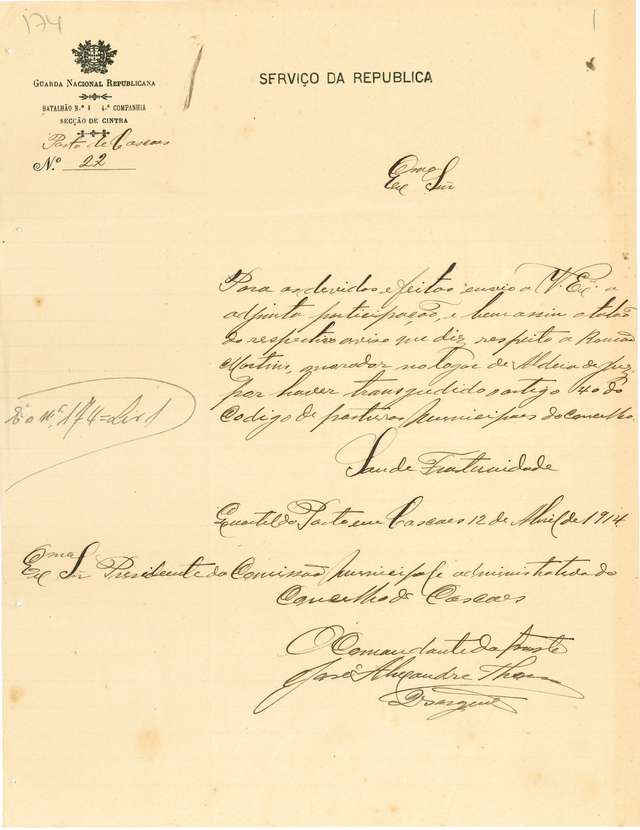 174
1
GUARDA NACIONAL REPUBLICANA
BATALHÃO N.º 1 4.ª COMPANHIA
SECÇÃO DE CINTRA
Posto de Cascaes
N.º 22
SERVIÇO DA REPUBLICA
Exmo Sñr
Para os devidos efeitos envio a V. Ex.ª a
adjunta participação, e bem assim o talão
do respectivo aviso que diz respeito a
Martins, morador no logar de Aldeia de Juzo
por haver transgredido o artigo 40 do
Codigo de posturas municipaes do concelho
Saude Fraternidade
Quartel do Posto em Cascaes 12 de Abril de 1914
Exmo Sr Presidente da Comissão Municipal e administrativa do
Concelho de Cascaes
O Comandante do Posto
José Alexandre
nº 174 = Liv 1